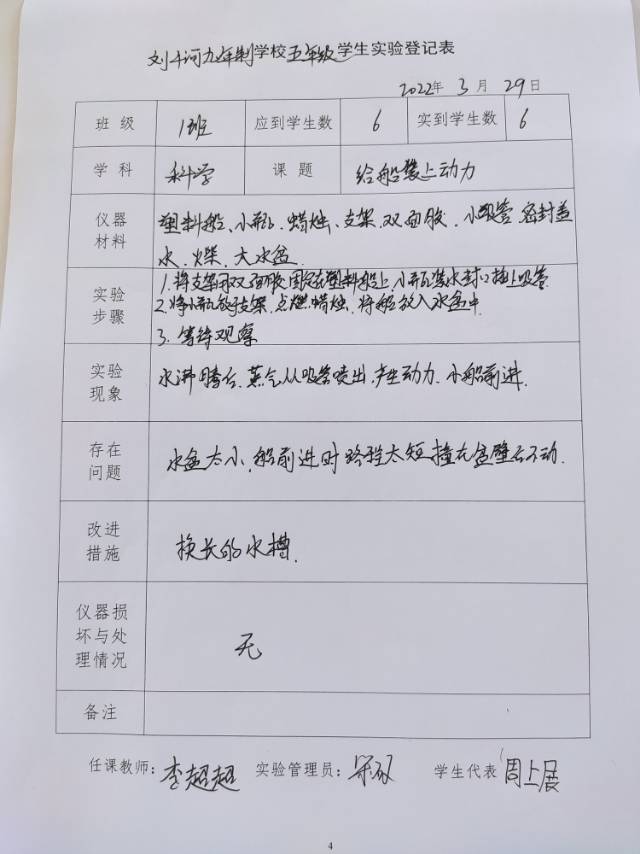 刘千河九年制学校五年级学生实验登记表
2022年 3 月 29 日
班 级 1班 应到学生数 6 实到学生数 6
学 科 科学 课 题 给船装上动力
仪器材料 塑料船、小瓶、蜡烛、支架、双面胶、小吸管、密封盖
水、火柴、大水盆
实验步骤 1.将支架用双面胶固定在塑料船上,小瓶装水封口插上吸管
2.将小瓶放于支架,点燃蜡烛,将船放入水盆中
3.等待观察
实验现象 水沸腾后,蒸气从吸管喷出,产生动力,小船前进.
存在问题 水盆太小,船前进时路程太短撞在盆壁后不动.
改进措施 换长的水槽.
仪器损坏与处理情况 无
备注
任课教师:李超超 实验管理员: 学生代表 周上展
4